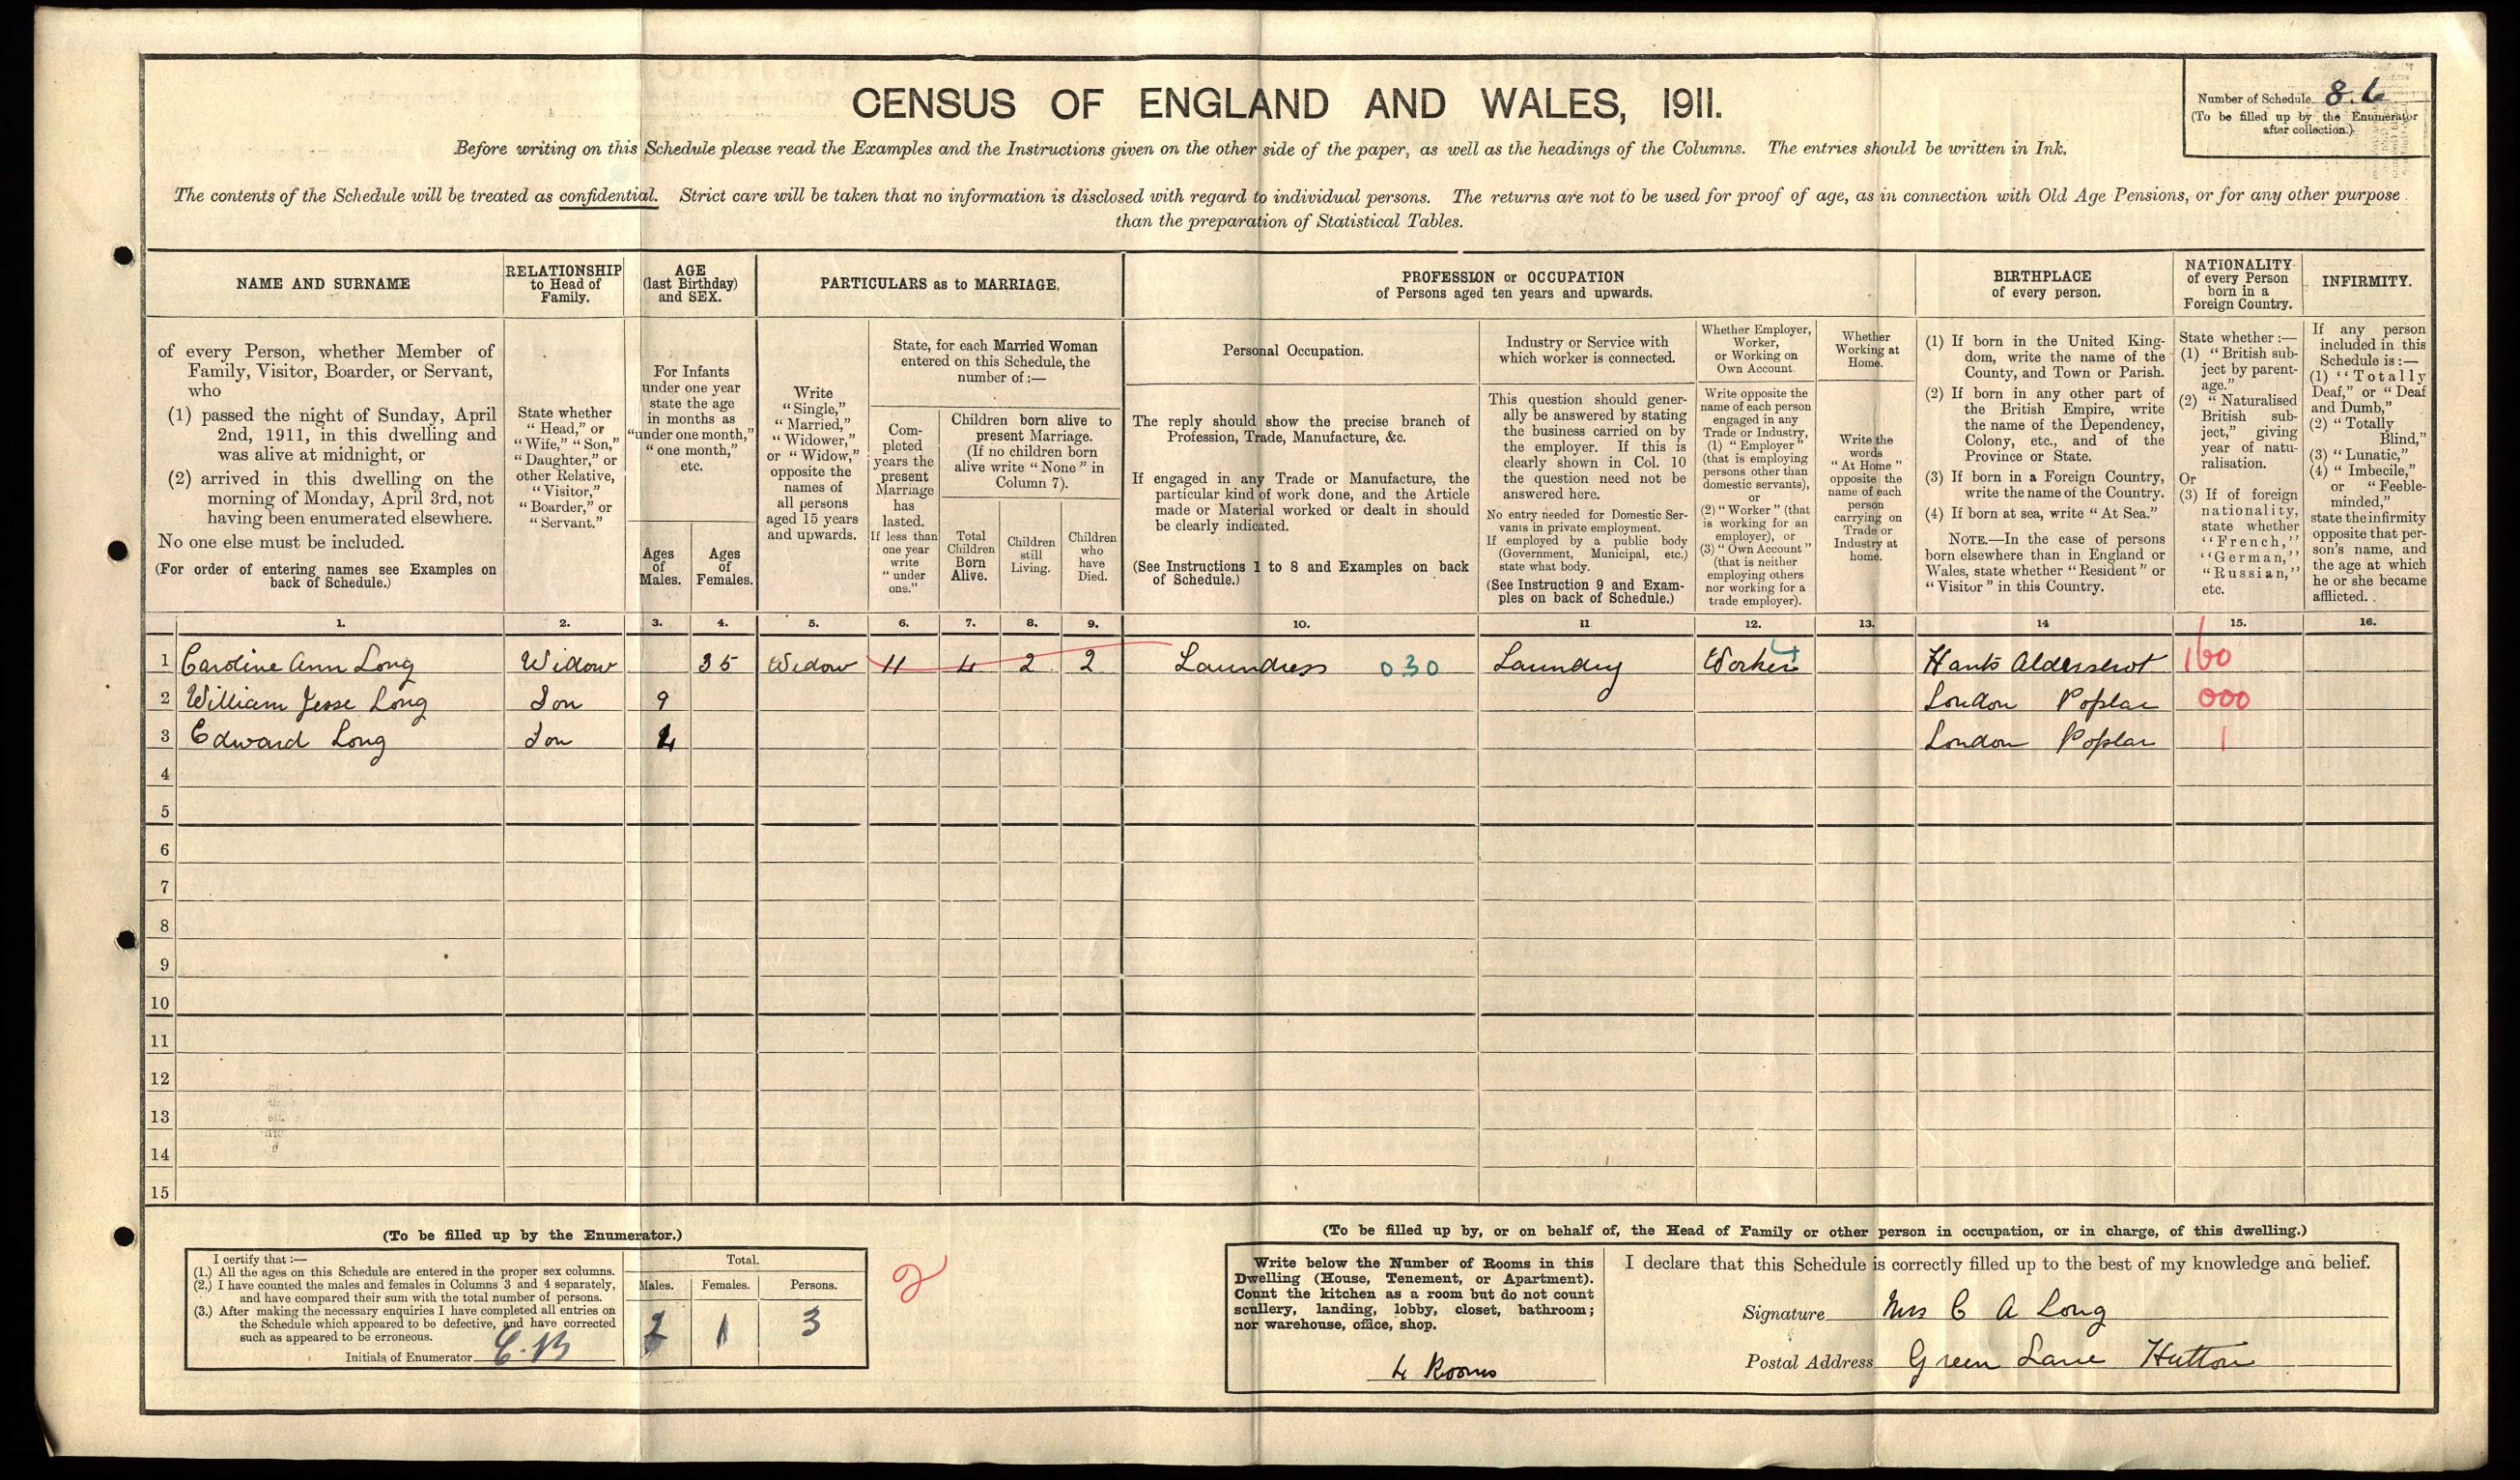 CENSUS OF ENGLAND AND WALES, 1911.
Number of Schedule 86
(To be filled up by the Enumerator
after collection.)
Before writing on this Schedule please read the Examples and the Instructions given on the other side of the paper, as well as the headings of the Columns. The entries should be written in Ink.
The contents of the Schedule will be treated as confidential. Strict care will be taken that no information is disclosed with regard to individual persons. The returns are not to be used for proof of age, as in connection with Old Age Pensions, or for any other purpose
than the preparation of Statistical Tables.
NAME AND SURNAME
of every Person, whether Member of
Family, Visitor, Boarder, or Servant,
who
(1) passed the night of Sunday, April
2nd, 1911, in this dwelling and
was alive at midnight, or
(2) arrived in this dwelling on the
morning of Monday, April 3rd, not
having been enumerated elsewhere.
No one else must be included.
(For order of entering names see Examples on
back of Schedule.)
RELATIONSHIP
to Head of
Family.
State whether
"Head," or
"Wife," "Son,"
"Daughter," or
other Relative,
"Visitor,"
"Boarder," or
"Servant."
AGE
(last Birthday)
and SEX.
For Infants
under one year
state the age
in months as
"under one month,"
"one month,"
etc.
Ages
of
Males.
Ages
of
Females.
PARTICULARS as to MARRIAGE.
Write
"Single,"
"Married,"
"Widower,"
or "Widow,"
opposite the
names of
all persons
aged 15 years
and upwards.
State, for each Married Woman
entered on this Schedule, the
number of :—
Com-
pleted
years the
present
Marriage
has
lasted.
If less than
one year
write
"under
one."
Children born alive to
present Marriage.
(If no children born
alive write "None" in
Column 7).
Total
Children
Born
Alive.
Children
still
Living.
Children
who
have
Died.
PROFESSION or OCCUPATION
of Persons aged ten years and upwards.
Personal Occupation.
The reply should show the precise branch of
Profession, Trade, Manufacture, &c.
If engaged in any Trade or Manufacture, the
particular kind of work done, and the Article
made or Material worked or dealt in should
be clearly indicated.
(See Instructions 1 to 8 and Examples on back
of Schedule.)
Industry or Service with
which worker is connected.
This question should gener-
ally be answered by stating
the business carried on by
the employer. If this is
clearly shown in Col. 10
the question need not be
answered here.
No entry needed for Domestic Ser-
vants in private employment.
If employed by a public body
(Government, Municipal, etc.)
state what body.
(See Instruction 9 and Exam-
ples on back of Schedule.)
Whether Employer,
Worker,
or Working on
Own Account.
Write opposite the
name of each person
engaged in any
Trade or Industry,
(1) "Employer"
(that is employing
persons other than
domestic servants),
or
(2) "Worker" (that
is working for an
employer), or
(3) "Own Account"
(that is neither
employing others
nor working for a
trade employer).
Whether
Working at
Home.
Write the
words
"At Home"
opposite the
name of each
person
carrying on
Trade or
Industry at
home.
BIRTHPLACE
of every person.
(1) If born in the United King-
dom, write the name of the
County, and Town or Parish.
(2) If born in any other part of
the British Empire, write
the name of the Dependency,
Colony, etc., and of the
Province or State.
(3) If born in a Foreign Country,
write the name of the Country.
(4) If born at sea, write "At Sea."
NOTE.—In the case of persons
born elsewhere than in England or
Wales, state whether "Resident" or
"Visitor" in this Country.
NATIONALITY
of every Person
born in a
Foreign Country.
State whether :—
(1) "British sub-
ject by parent-
age."
(2) "Naturalised
British sub-
ject," giving
year of natu-
ralisation.
Or
(3) If of foreign
nationality,
state whether
"French,"
"German,"
"Russian,"
etc.
INFIRMITY.
If any person
included in this
Schedule is :—
(1) "Totally
Deaf," or "Deaf
and Dumb,"
(2) "Totally
Blind,"
(3) "Lunatic,"
(4) "Imbecile,"
or "Feeble-
minded,"
state the infirmity
opposite that per-
son's name, and
the age at which
he or she became
afflicted.
1. 2. 3. 4. 5. 6. 7. 8. 9. 10. 11 12. 13. 14 15. 16.
1 Caroline Ann Long Widow 35 Widow 11 4 2 2 Laundress 030 Laundry Worker 4 Hants Aldershot 160
2 William Jesse Long Son 9 London Poplar 000
3 Edward Long Son 4 London Poplar 1
4
5
6
7
8
9
10
11
12
13
14
15
(To be filled up by the Enumerator.)
I certify that :—
(1.) All the ages on this Schedule are entered in the proper sex columns.
(2.) I have counted the males and females in Columns 3 and 4 separately,
and have compared their sum with the total number of persons.
(3.) After making the necessary enquiries I have completed all entries on
the Schedule which appeared to be defective, and have corrected
such as appeared to be erroneous.
Initials of Enumerator C.B
Total.
Males. Females. Persons.
2 1 3
2
(To be filled up by, or on behalf of, the Head of Family or other person in occupation, or in charge, of this dwelling.)
Write below the Number of Rooms in this
Dwelling (House, Tenement, or Apartment).
Count the kitchen as a room but do not count
scullery, landing, lobby, closet, bathroom;
nor warehouse, office, shop.
4 Rooms
I declare that this Schedule is correctly filled up to the best of my knowledge and belief.
Signature Mrs C A Long
Postal Address Green Lane Hutton